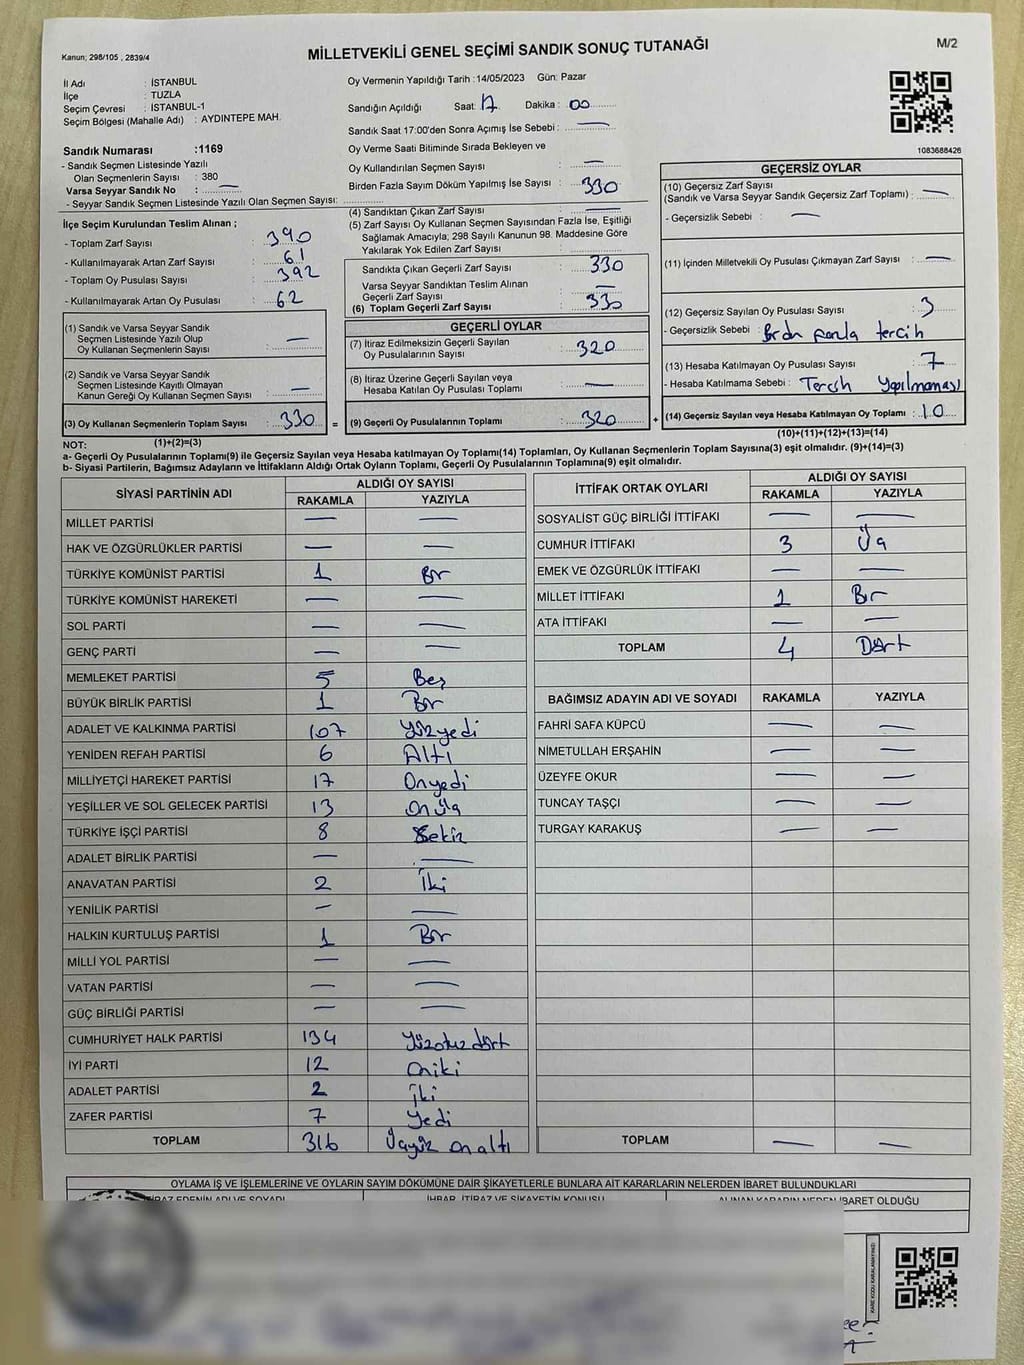 Kanun; 298/105 , 2839/4
MİLLETVEKİLİ GENEL SEÇİMİ SANDIK SONUÇ TUTANAĞI
M/2
İl Adı : İSTANBUL
İlçe : TUZLA
Seçim Çevresi : İSTANBUL-1
Seçim Bölgesi (Mahalle Adı) : AYDINTEPE MAH.
Sandık Numarası :1169
- Sandık Seçmen Listesinde Yazılı
Olan Seçmenlerin Sayısı : 380
Varsa Seyyar Sandık No : —
- Seyyar Sandık Seçmen Listesinde Yazılı Olan Seçmen Sayısı:
Oy Vermenin Yapıldığı Tarih :14/05/2023 Gün: Pazar
Sandığın Açıldığı Saat: 17 Dakika : 00
Sandık Saat 17:00'den Sonra Açımış İse Sebebi : —
Oy Verme Saati Bitiminde Sırada Bekleyen ve
Oy Kullandırılan Seçmen Sayısı : —
Birden Fazla Sayım Döküm Yapılmış İse Sayısı : 330
1083688426
İlçe Seçim Kurulundan Teslim Alınan ;
- Toplam Zarf Sayısı : 390
- Kullanılmayarak Artan Zarf Sayısı : 61
- Toplam Oy Pusulası Sayısı : 392
- Kullanılmayarak Artan Oy Pusulası : 62
(1) Sandık ve Varsa Seyyar Sandık
Seçmen Listesinde Yazılı Olup
Oy Kullanan Seçmenlerin Sayısı : —
(2) Sandık ve Varsa Seyyar Sandık
Seçmen Listesinde Kayıtlı Olmayan
Kanun Gereği Oy Kullanan Seçmen Sayısı : —
(3) Oy Kullanan Seçmenlerin Toplam Sayısı : 330 =
(4) Sandıktan Çıkan Zarf Sayısı : —
(5) Zarf Sayısı Oy Kullanan Seçmen Sayısından Fazla İse, Eşitliği
Sağlamak Amacıyla; 298 Sayılı Kanunun 98. Maddesine Göre
Yakılarak Yok Edilen Zarf Sayısı :
Sandıkta Çıkan Geçerli Zarf Sayısı : 330
Varsa Seyyar Sandıktan Teslim Alınan
Geçerli Zarf Sayısı : —
(6) Toplam Geçerli Zarf Sayısı : 330
GEÇERLİ OYLAR
(7) İtiraz Edilmeksizin Geçerli Sayılan
Oy Pusulalarının Sayısı : 320
(8) İtiraz Üzerine Geçerli Sayılan veya
Hesaba Katılan Oy Pusulası Toplamı : —
(9) Geçerli Oy Pusulalarının Toplamı : 320 +
GEÇERSİZ OYLAR
(10) Geçersiz Zarf Sayısı
(Sandık ve Varsa Seyyar Sandık Geçersiz Zarf Toplamı) : —
- Geçersizlik Sebebi : —
(11) İçinden Milletvekili Oy Pusulası Çıkmayan Zarf Sayısı : —
(12) Geçersiz Sayılan Oy Pusulası Sayısı : 3
- Geçersizlik Sebebi : Birden fazla tercih
(13) Hesaba Katılmayan Oy Pusulası Sayısı : 7
- Hesaba Katılmama Sebebi : Tercih Yapılmaması
(14) Geçersiz Sayılan veya Hesaba Katılmayan Oy Toplamı : 10
NOT: (1)+(2)=(3)
(10)+(11)+(12)+(13)=(14)
a- Geçerli Oy Pusulalarının Toplamı(9) ile Geçersiz Sayılan veya Hesaba katılmayan Oy Toplamı(14) Toplamları, Oy Kullanan Seçmenlerin Toplam Sayısına(3) eşit olmalıdır. (9)+(14)=(3)
b- Siyasi Partilerin, Bağımsız Adayların ve İttifakların Aldığı Ortak Oyların Toplamı, Geçerli Oy Pusulalarının Toplamına(9) eşit olmalıdır.
SİYASİ PARTİNİN ADI ALDIĞI OY SAYISI
RAKAMLA YAZIYLA
MİLLET PARTİSİ — —
HAK VE ÖZGÜRLÜKLER PARTİSİ — —
TÜRKİYE KOMÜNİST PARTİSİ 1 Bir
TÜRKİYE KOMÜNİST HAREKETİ — —
SOL PARTİ — —
GENÇ PARTİ — —
MEMLEKET PARTİSİ 5 Beş
BÜYÜK BİRLİK PARTİSİ 1 Bir
ADALET VE KALKINMA PARTİSİ 107 Yüzyedi
YENİDEN REFAH PARTİSİ 6 Altı
MİLLİYETÇİ HAREKET PARTİSİ 17 Onyedi
YEŞİLLER VE SOL GELECEK PARTİSİ 13 Onüç
TÜRKİYE İŞÇİ PARTİSİ 8 Sekiz
ADALET BİRLİK PARTİSİ — —
ANAVATAN PARTİSİ 2 İki
YENİLİK PARTİSİ — —
HALKIN KURTULUŞ PARTİSİ 1 Bir
MİLLİ YOL PARTİSİ — —
VATAN PARTİSİ — —
GÜÇ BİRLİĞİ PARTİSİ — —
CUMHURİYET HALK PARTİSİ 134 Yüzotuzdört
İYİ PARTİ 12 Oniki
ADALET PARTİSİ 2 İki
ZAFER PARTİSİ 7 Yedi
TOPLAM 316 Üçyüz onaltı
İTTİFAK ORTAK OYLARI ALDIĞI OY SAYISI
RAKAMLA YAZIYLA
SOSYALİST GÜÇ BİRLİĞİ İTTİFAKI — —
CUMHUR İTTİFAKI 3 Üç
EMEK VE ÖZGÜRLÜK İTTİFAKI — —
MİLLET İTTİFAKI 1 Bir
ATA İTTİFAKI — —
TOPLAM 4 Dört
BAĞIMSIZ ADAYIN ADI VE SOYADI RAKAMLA YAZIYLA
FAHRİ SAFA KÜPCÜ — —
NİMETULLAH ERŞAHİN — —
ÜZEYFE OKUR — —
TUNCAY TAŞÇI — —
TURGAY KARAKUŞ — —
TOPLAM — —
OYLAMA İŞ VE İŞLEMLERİNE VE OYLARIN SAYIM DÖKÜMÜNE DAİR ŞİKAYETLERLE BUNLARA AİT KARARLARIN NELERDEN İBARET BULUNDUKLARI
İTİRAZ EDENİN ADI VE SOYADI İHBAR, İTİRAZ VE ŞİKAYETİN KONUSU ALINAN KARARIN NEDEN İBARET OLDUĞU
KARE KODU KARALAMAYINIZ!